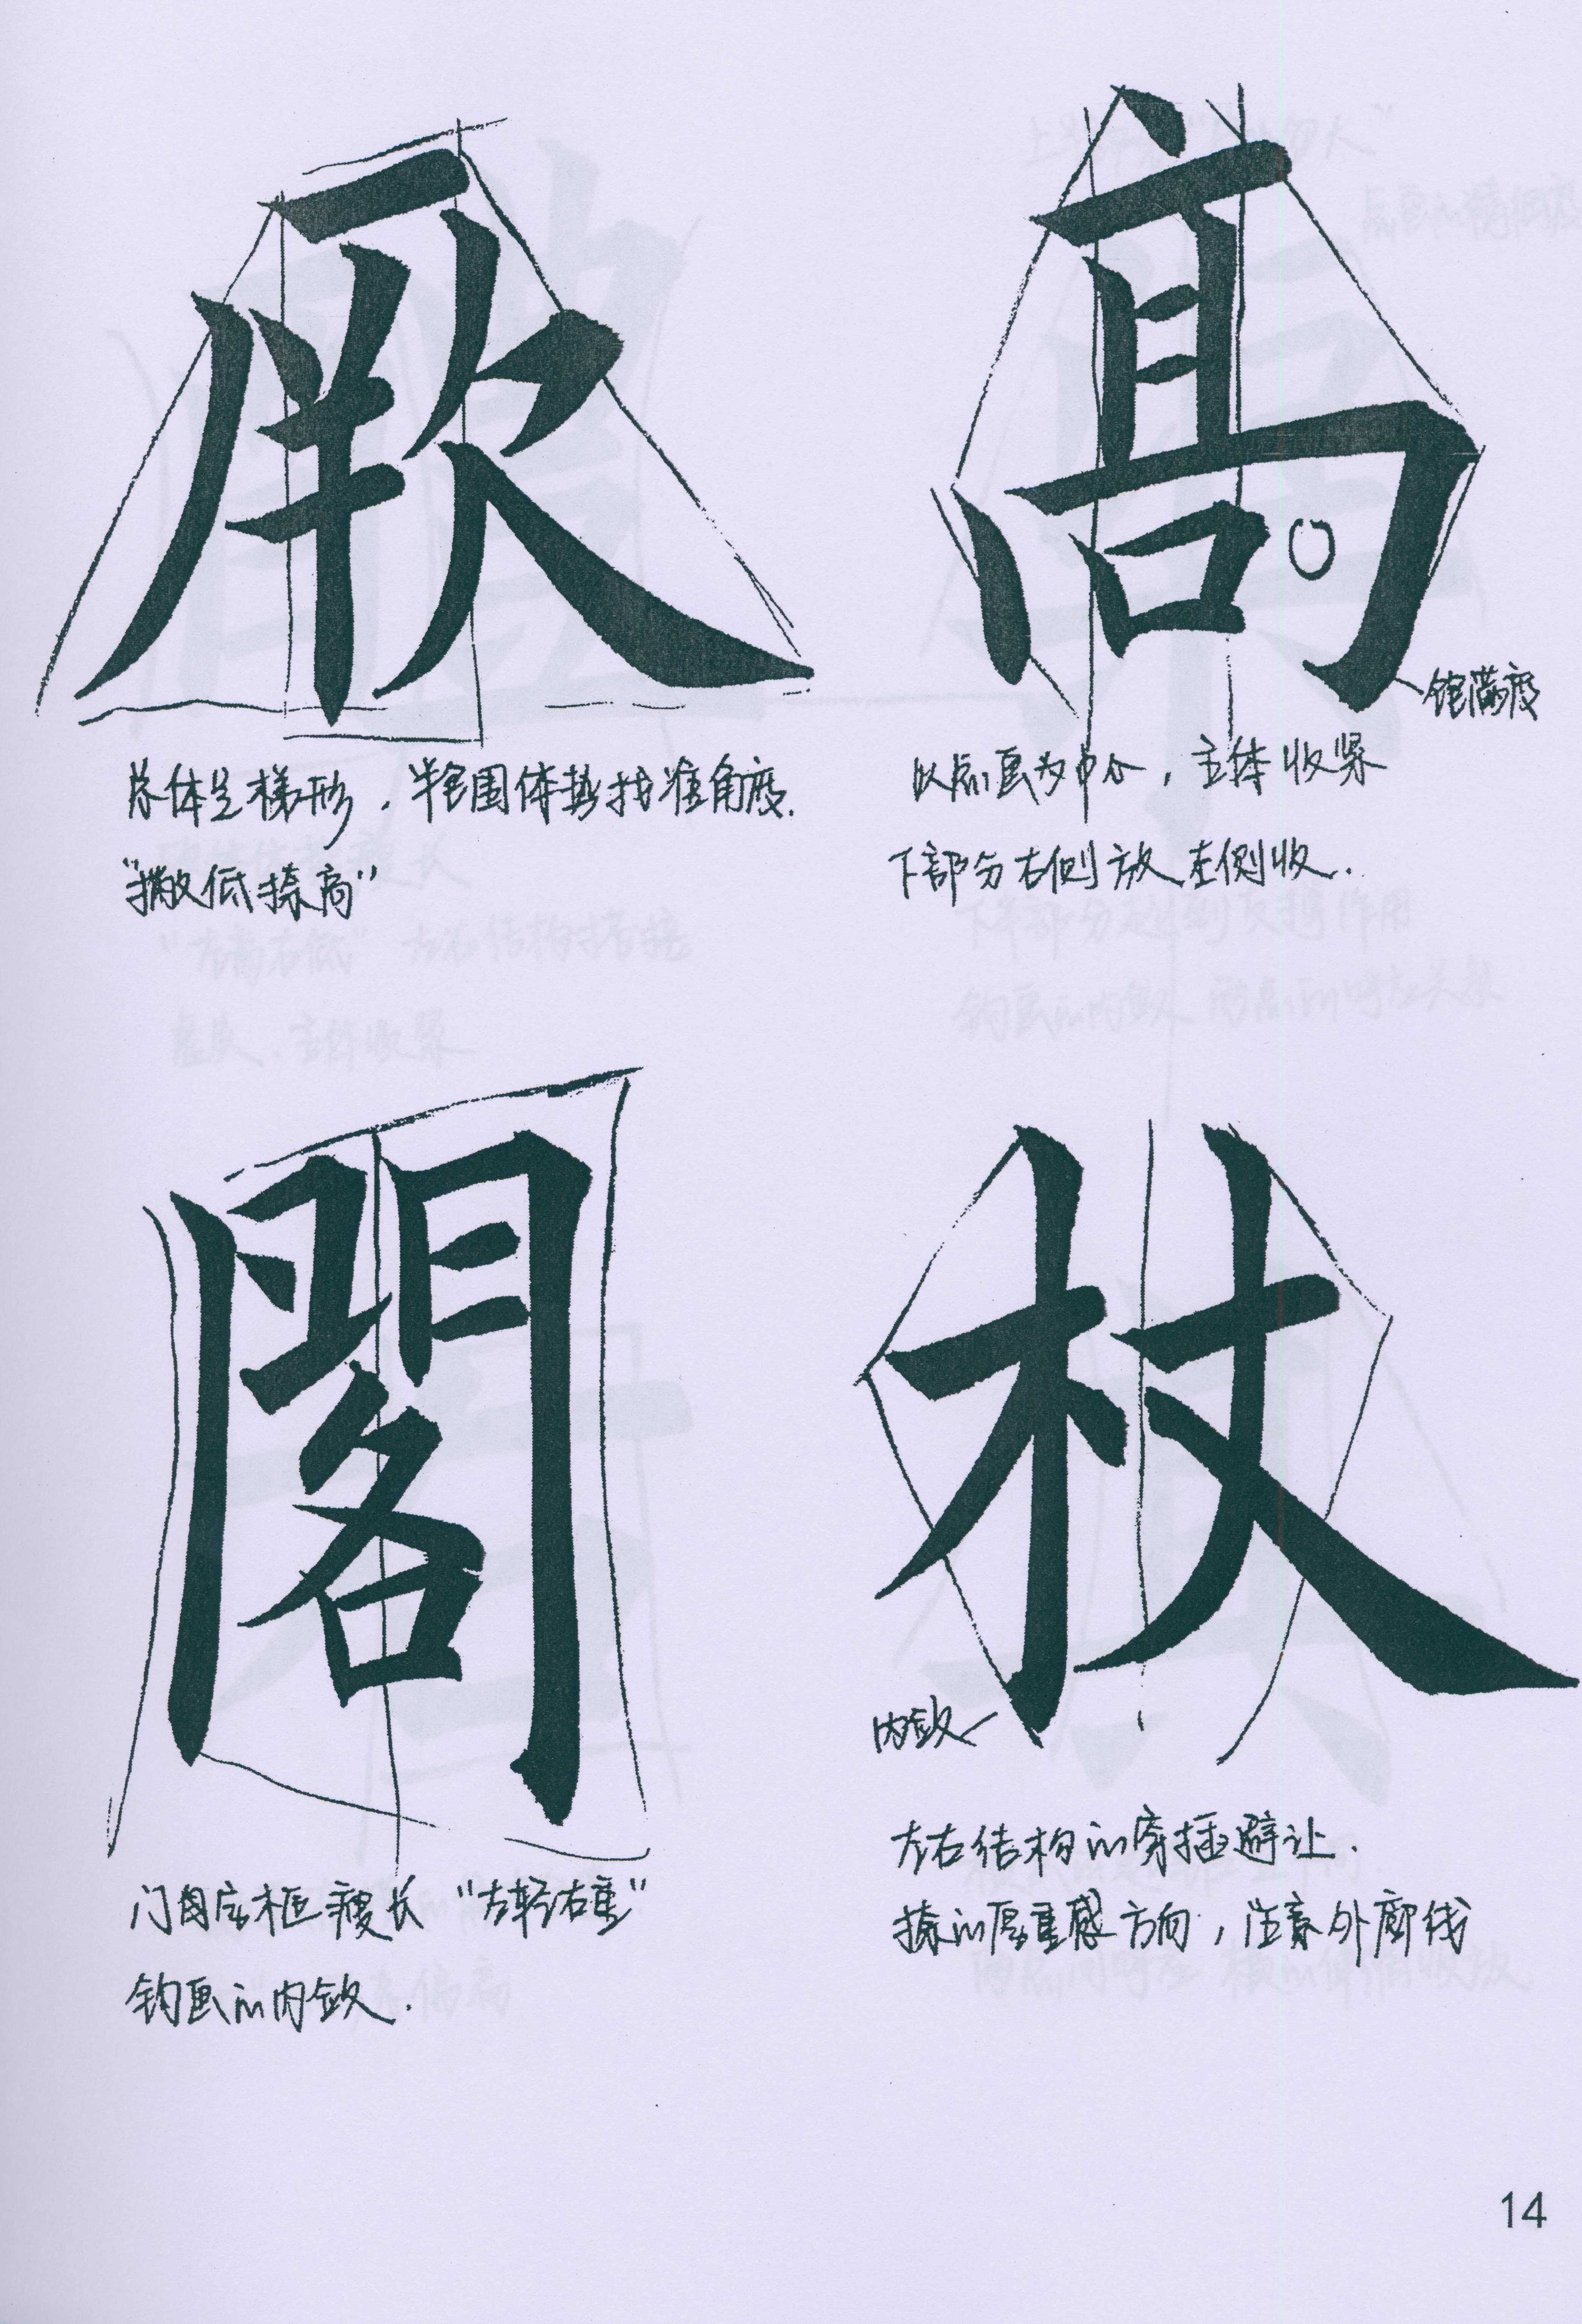 厥
总体呈梯形，半包围体势找准角度.
“撇低捺高”
髙
饱满度
以点画为中心，主体收紧
下部分右侧放 左侧收.
閣
门自字框瘦长 “左轻右重”
钩画的内敛.
杖
内敛
左右结构的穿插避让.
捺的厚重感 方向，注意外廓线
14